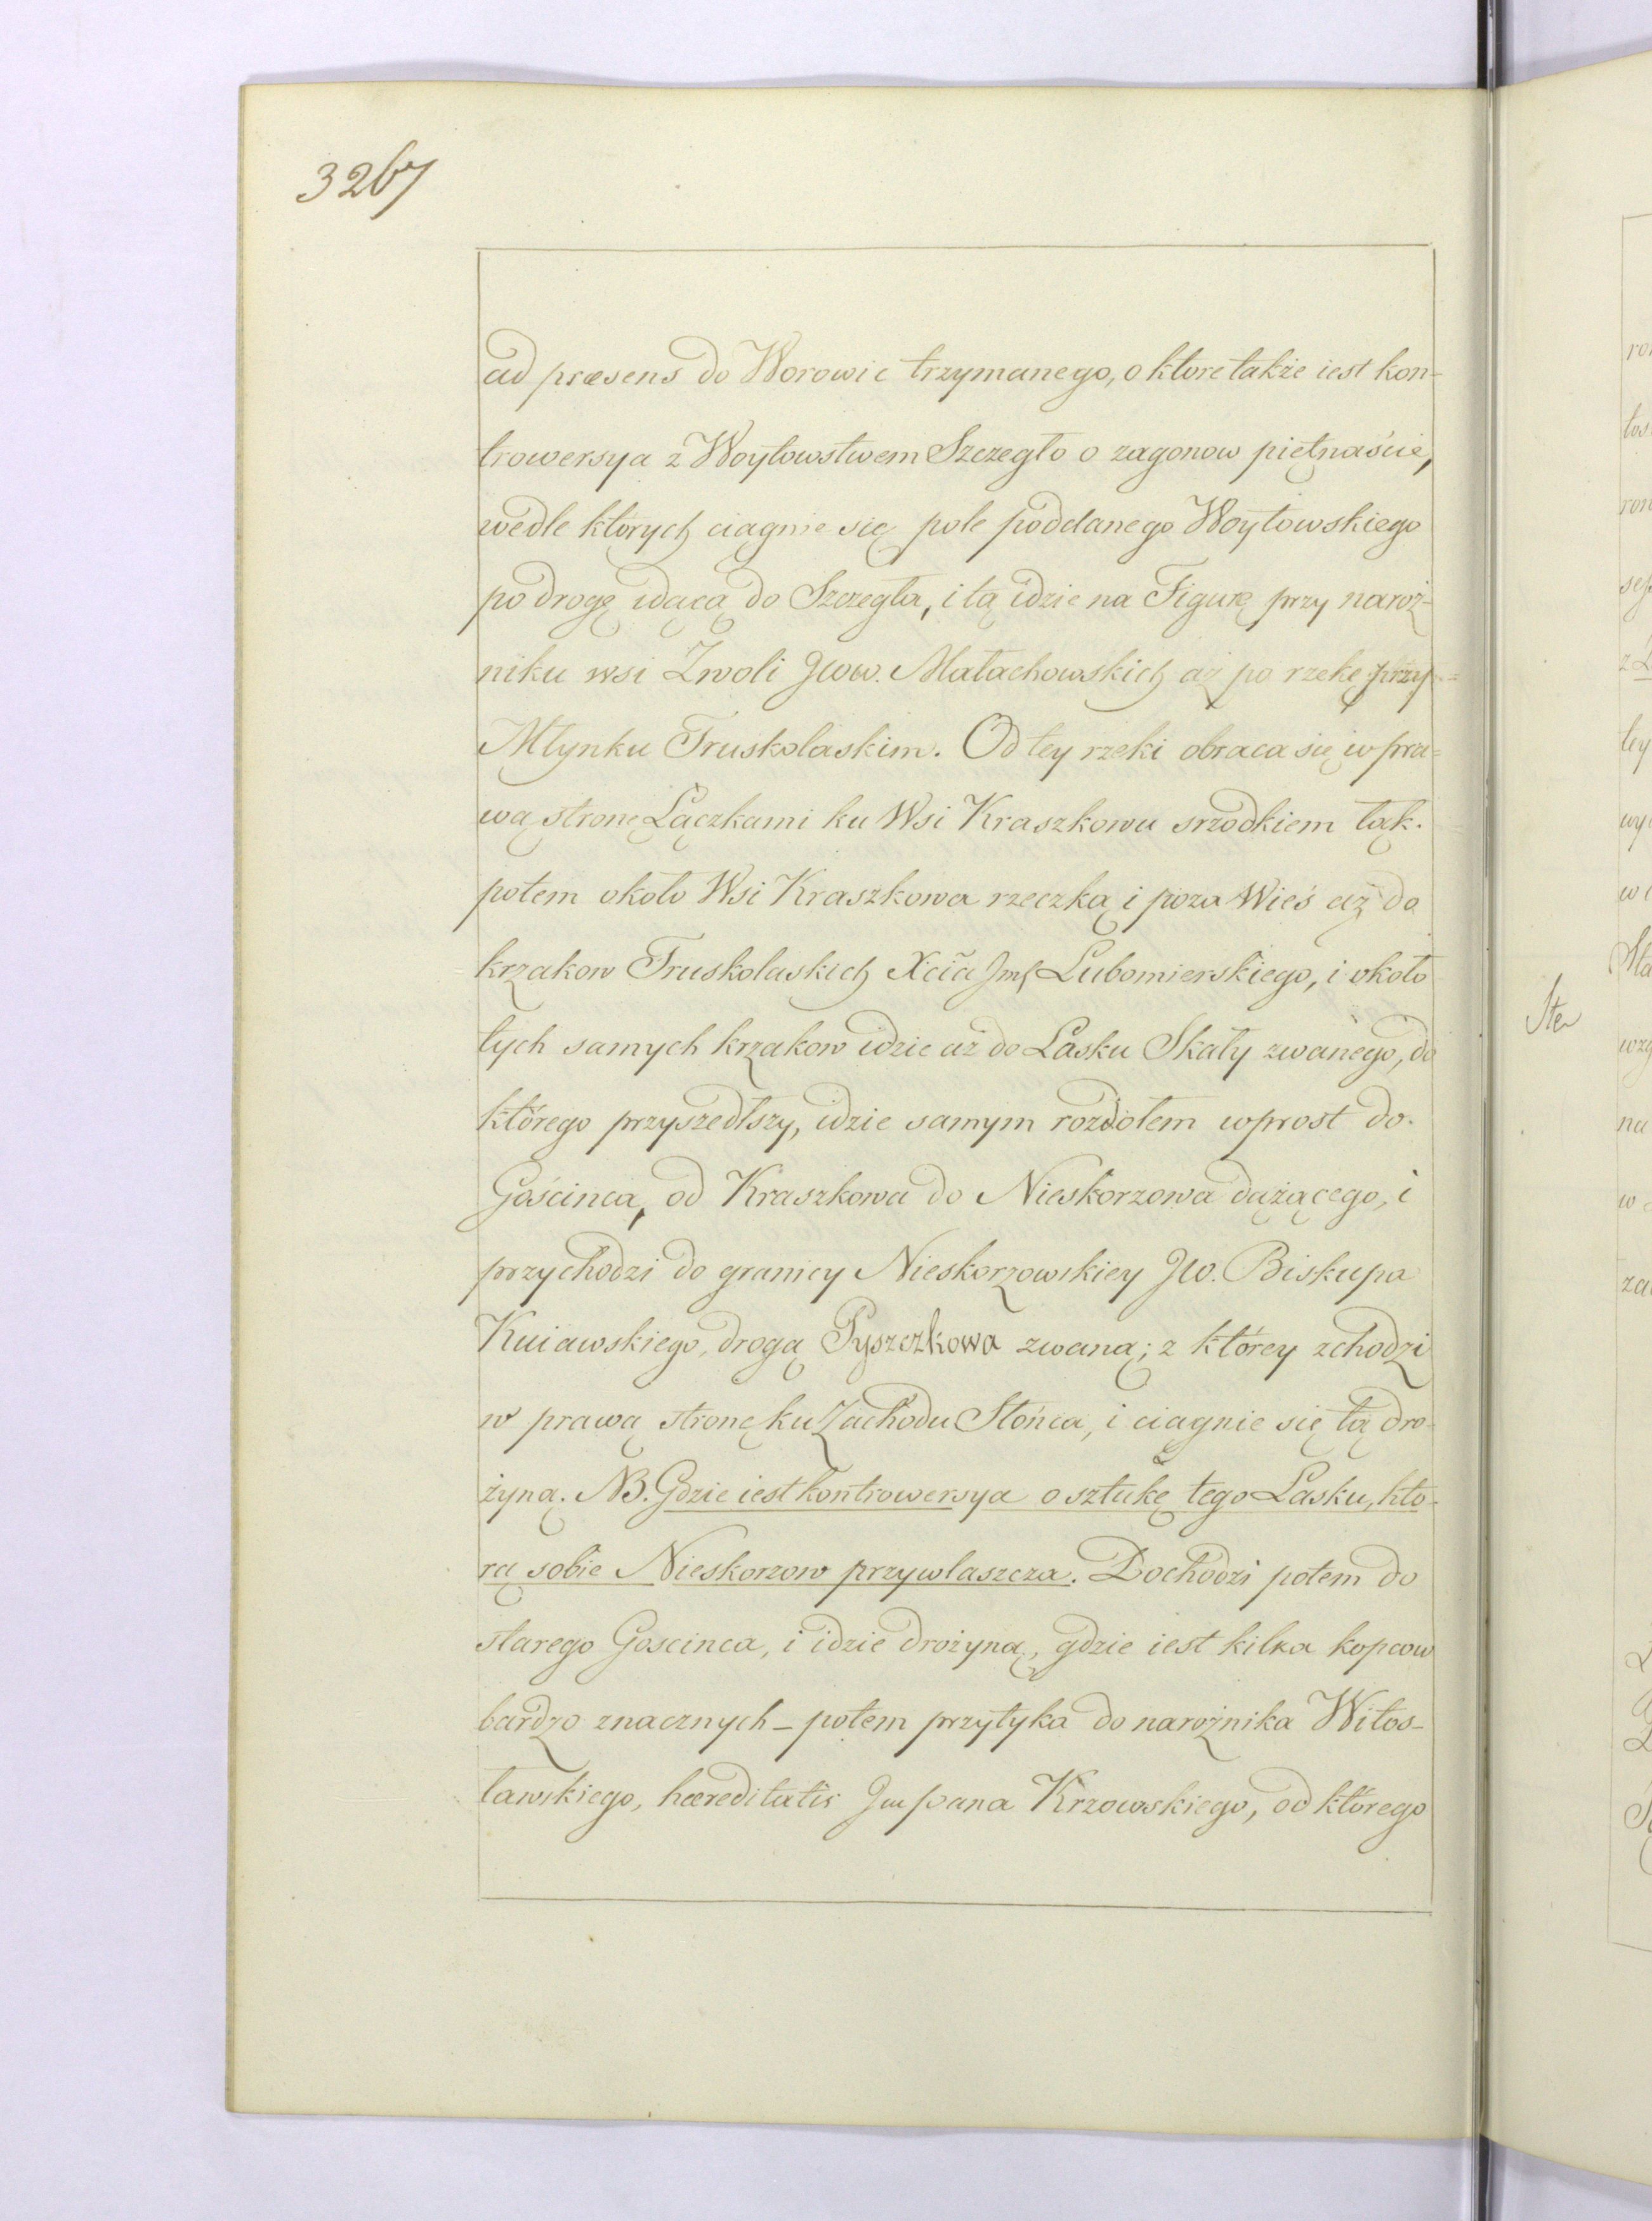 3267
ad præsens do Worowic trzymanego, o ktore także iest kon-
trowersya z Woytowstwem Szczegło o zagonow piętnaście,
wedle których ciągnie się pole poddanego Woytowskiego
po drogę idącą do Szczegła, i tą idzie na Figurę przy naroż-
niku wsi Zwoli Jww. Małachowskich aż po rzekę przy-
Młynku Truskolaskim. Od tey rzeki obraca się w pra=
wą stronę Łączkami ku Wsi Kraszkowu srzodkiem łąk.
potem około Wsi Kraszkowa rzeczką i poza Wieś aż do
krzakow Truskolaskich Xcia Jmć Lubomierskiego, i około
tych samych krzakow idzie aż do Lasku Skały zwanego, do
którego przyszedłszy, idzie samym rozdołem wprost do
Gościnca, od Kraszkowa do Nieskorzowa dążącego, i
przychodzi do granicy Nieskorzowskiey JW. Biskupa
Kuiawskiego, drogą Pyszczkowa zwaną; z którey zchodzi
w prawą stronę ku Zachodu Słońca, i ciągnie się tą dro-
żyną. NB. Gdzie iest kontrowersya o sztukę tego Lasku, kto-
rą sobie Nieskorzow przywlaszcza. Dochodzi potem do
starego Goscinca, i idzie drożyną, gdzie iest kilka kopcow
bardzo znacznych – potem przytyka do narożnika Witos-
ławskiego, hæreditatis Jmpana Krzowskiego, od którego